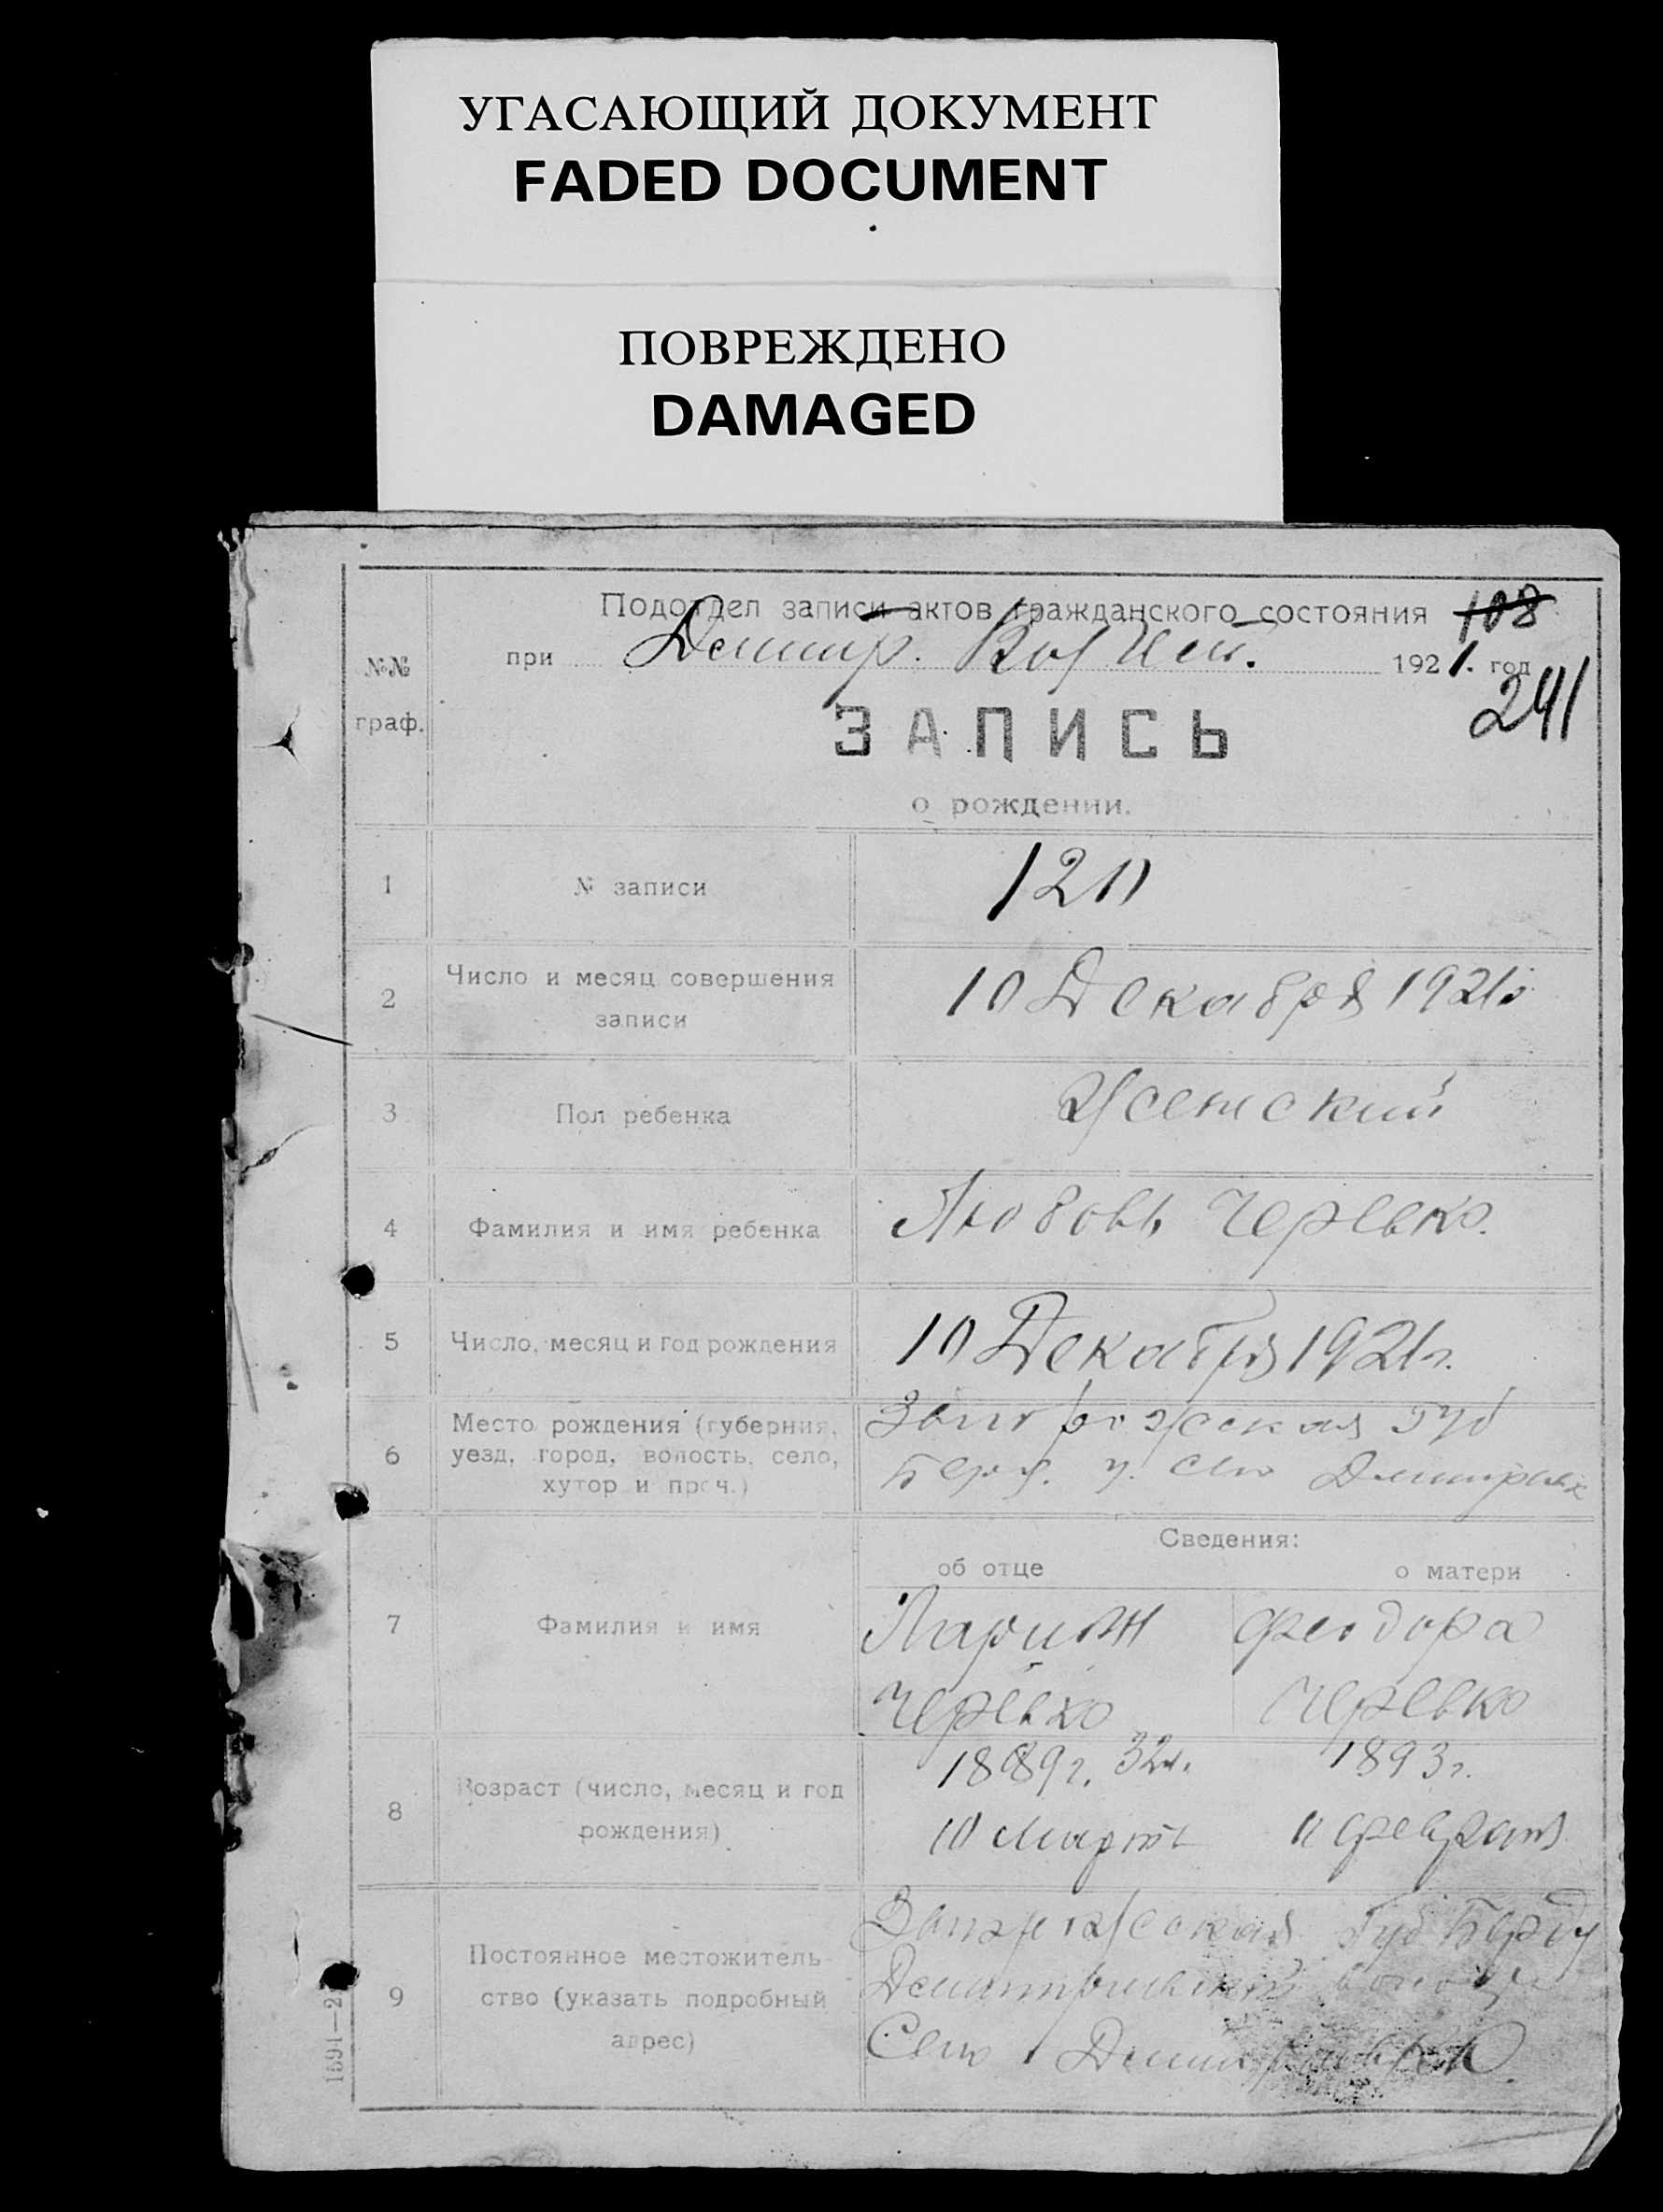 УГАСАЮЩИЙ ДОКУМЕНТ
FADED DOCUMENT
ПОВРЕЖДЕНО
DAMAGED
Подотдел записи актов гражданского состояния 108
при Демитр. 1921. год
241
№№
граф.
ЗАПИСЬ
о рождении.
1 № записи 120
2 Число и месяц совершения
записи
10 Декабря 1921г
3 Пол ребенка Женский
4 Фамилия и имя ребенка Любовь Черевко.
5 Число, месяц и год рождения 10 Декабря 1921г.
6 Место рождения (губерния,
уезд, город, волость, село,
хутор и проч.)
Запорожская Губ
у. Село
Сведения:
об отце о матери
7 Фамилия и имя
Ларион Феодора
Черевко Черевко
8 Возраст (число, месяц и год
рождения)
1889г. 32л. 1893г.
10 Марта 11 февраля
9 Постоянное местожитель-
ство (указать подробный
адрес)
Запорожская Губ
Село